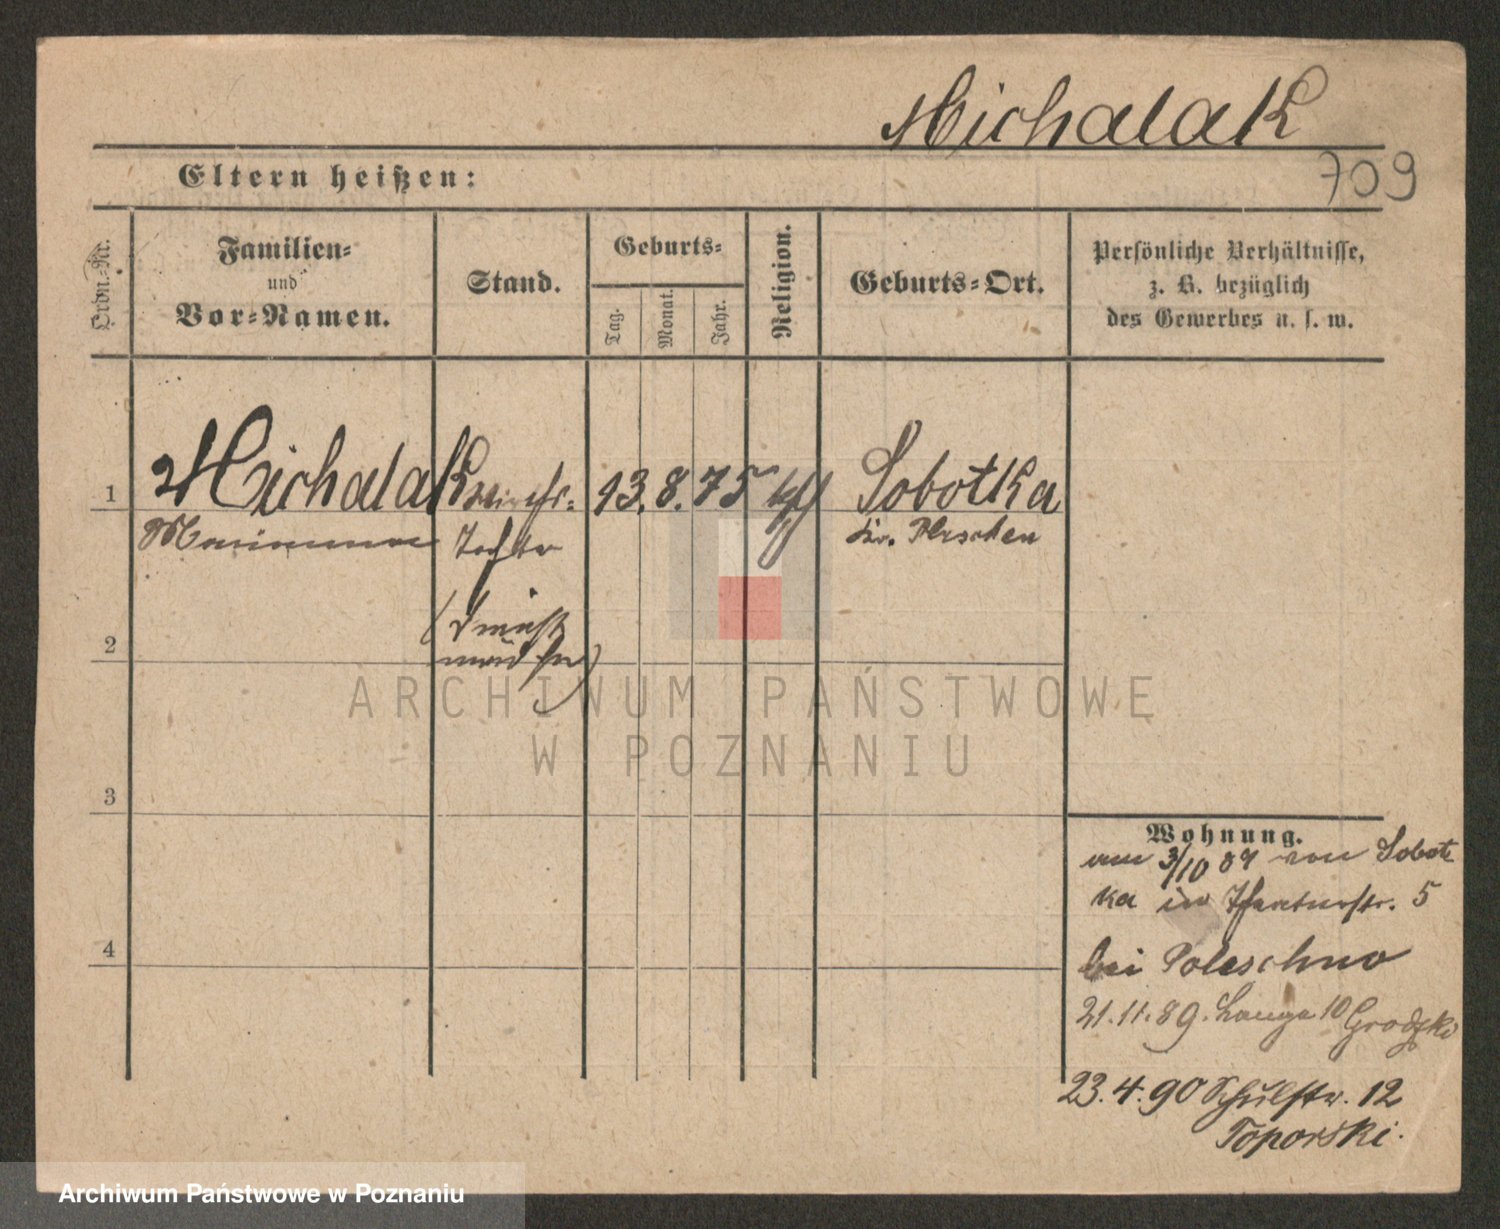 Michalak
709
Eltern heißen:
Ordn.-Nr.
Familien-
und
Vor-Namen.
Stand.
Geburts-
Tag.
Monat.
Jahr.
Religion.
Geburts-Ort.
Persönliche Verhältnisse,
z. B. bezüglich
des Gewerbes u. s. w.
1
Michalak
13. 8. 75
kth
Sobotka
Marianna
Tochter
Kr. Pleschen
(Dienst
mädchen)
2
3
4
Wohnung.
am 3/10 89 von Sobot
ka in 5
bei Poleschno
21.11.89. Lange 10 Grodzki
23.4.90 Schulstr. 12
Toporski.
ARCHIWUM PAŃSTWOWE
W POZNANIU
Archiwum Państwowe w Poznaniu